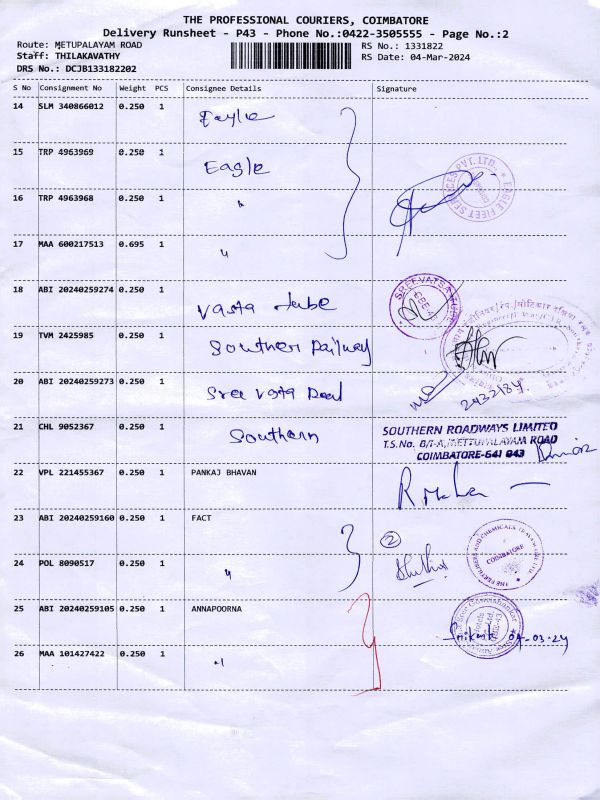 THE PROFESSIONAL COURIERS, COIMBATORE
Delivery Runsheet - P43 - Phone No.:0422-3505555 - Page No.:2
Route: METUPALAYAM ROAD RS No.: 1331822
Staff: THILAKAVATHY RS Date: 04-Mar-2024
DRS No.: DCJB133182202
S No Consignment No Weight PCS Consignee Details Signature
14 SLM 340866012 0.250 1 Eagle
15 TRP 4963969 0.250 1 Eagle
EAGLE FLEET SERVICES PVT. LTD.
16 TRP 4963968 0.250 1 "
17 MAA 600217513 0.695 1 "
18 ABI 20240259274 0.250 1 Vasta tube
SREEVATSA
19 TVM 2425985 0.250 1 Southern Railway
20 ABI 20240259273 0.250 1 Sree Vasta
21 CHL 9052367 0.250 1 Southern
SOUTHERN ROADWAYS LIMITED
T.S.No. 8/1-A, METTUPALAYAM ROAD
COIMBATORE-641 043
22 VPL 221455367 0.250 1 PANKAJ BHAVAN
23 ABI 20240259160 0.250 1 FACT
2
THE FERTILISERS AND CHEMICALS TRAVANCORE LTD.
COIMBATORE
24 POL 8090517 0.250 1 "
25 ABI 20240259105 0.250 1 ANNAPOORNA
04-03-24
26 MAA 101427422 0.250 1 "